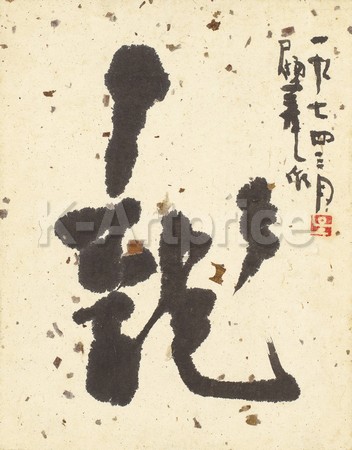 龍
一九七四三月
顧菴
K-Artprice